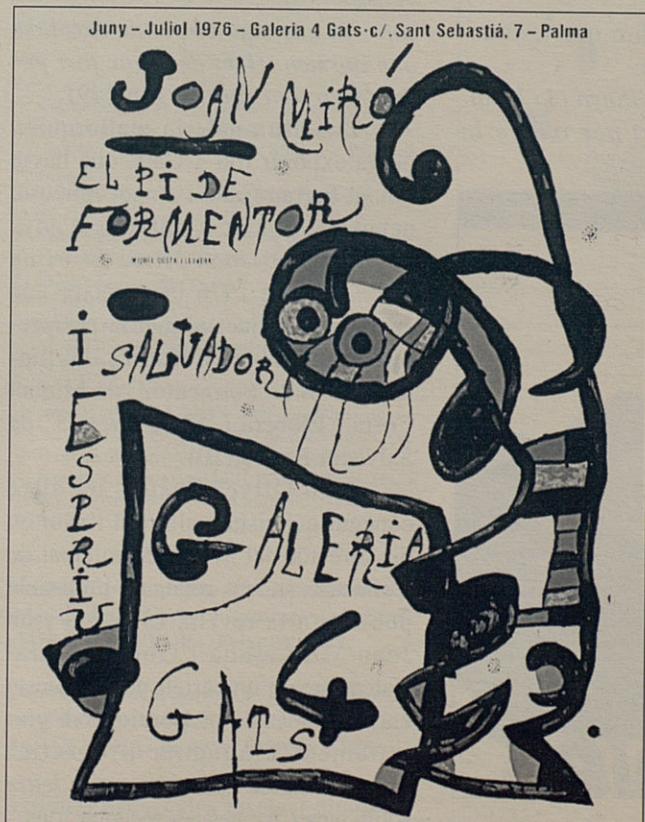 Juny – Juliol 1976 – Galeria 4 Gats · c/. Sant Sebastiá, 7 – Palma
JOAN MIRÓ
EL PI DE
FORMENTOR
MIQUEL COSTA I LLOBERA
I SALVADOR
ESPRIU
GALERIA
4
GATS